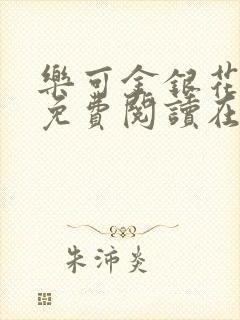 樂可金銀花
免費閱讀在
朱沛炎